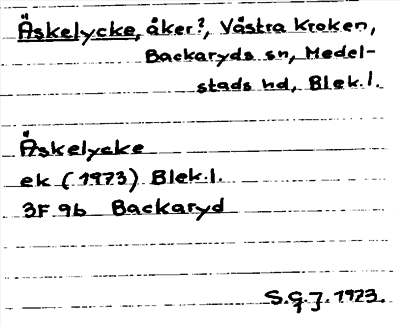 Äskelycke, åker?, Västra Kroken,
Backaryds sn, Medel-
stads hd, Blek.l.
Äskelycke
ek (1973) Blek.l.
3F 9b Backaryd
S.G.J. 1973.